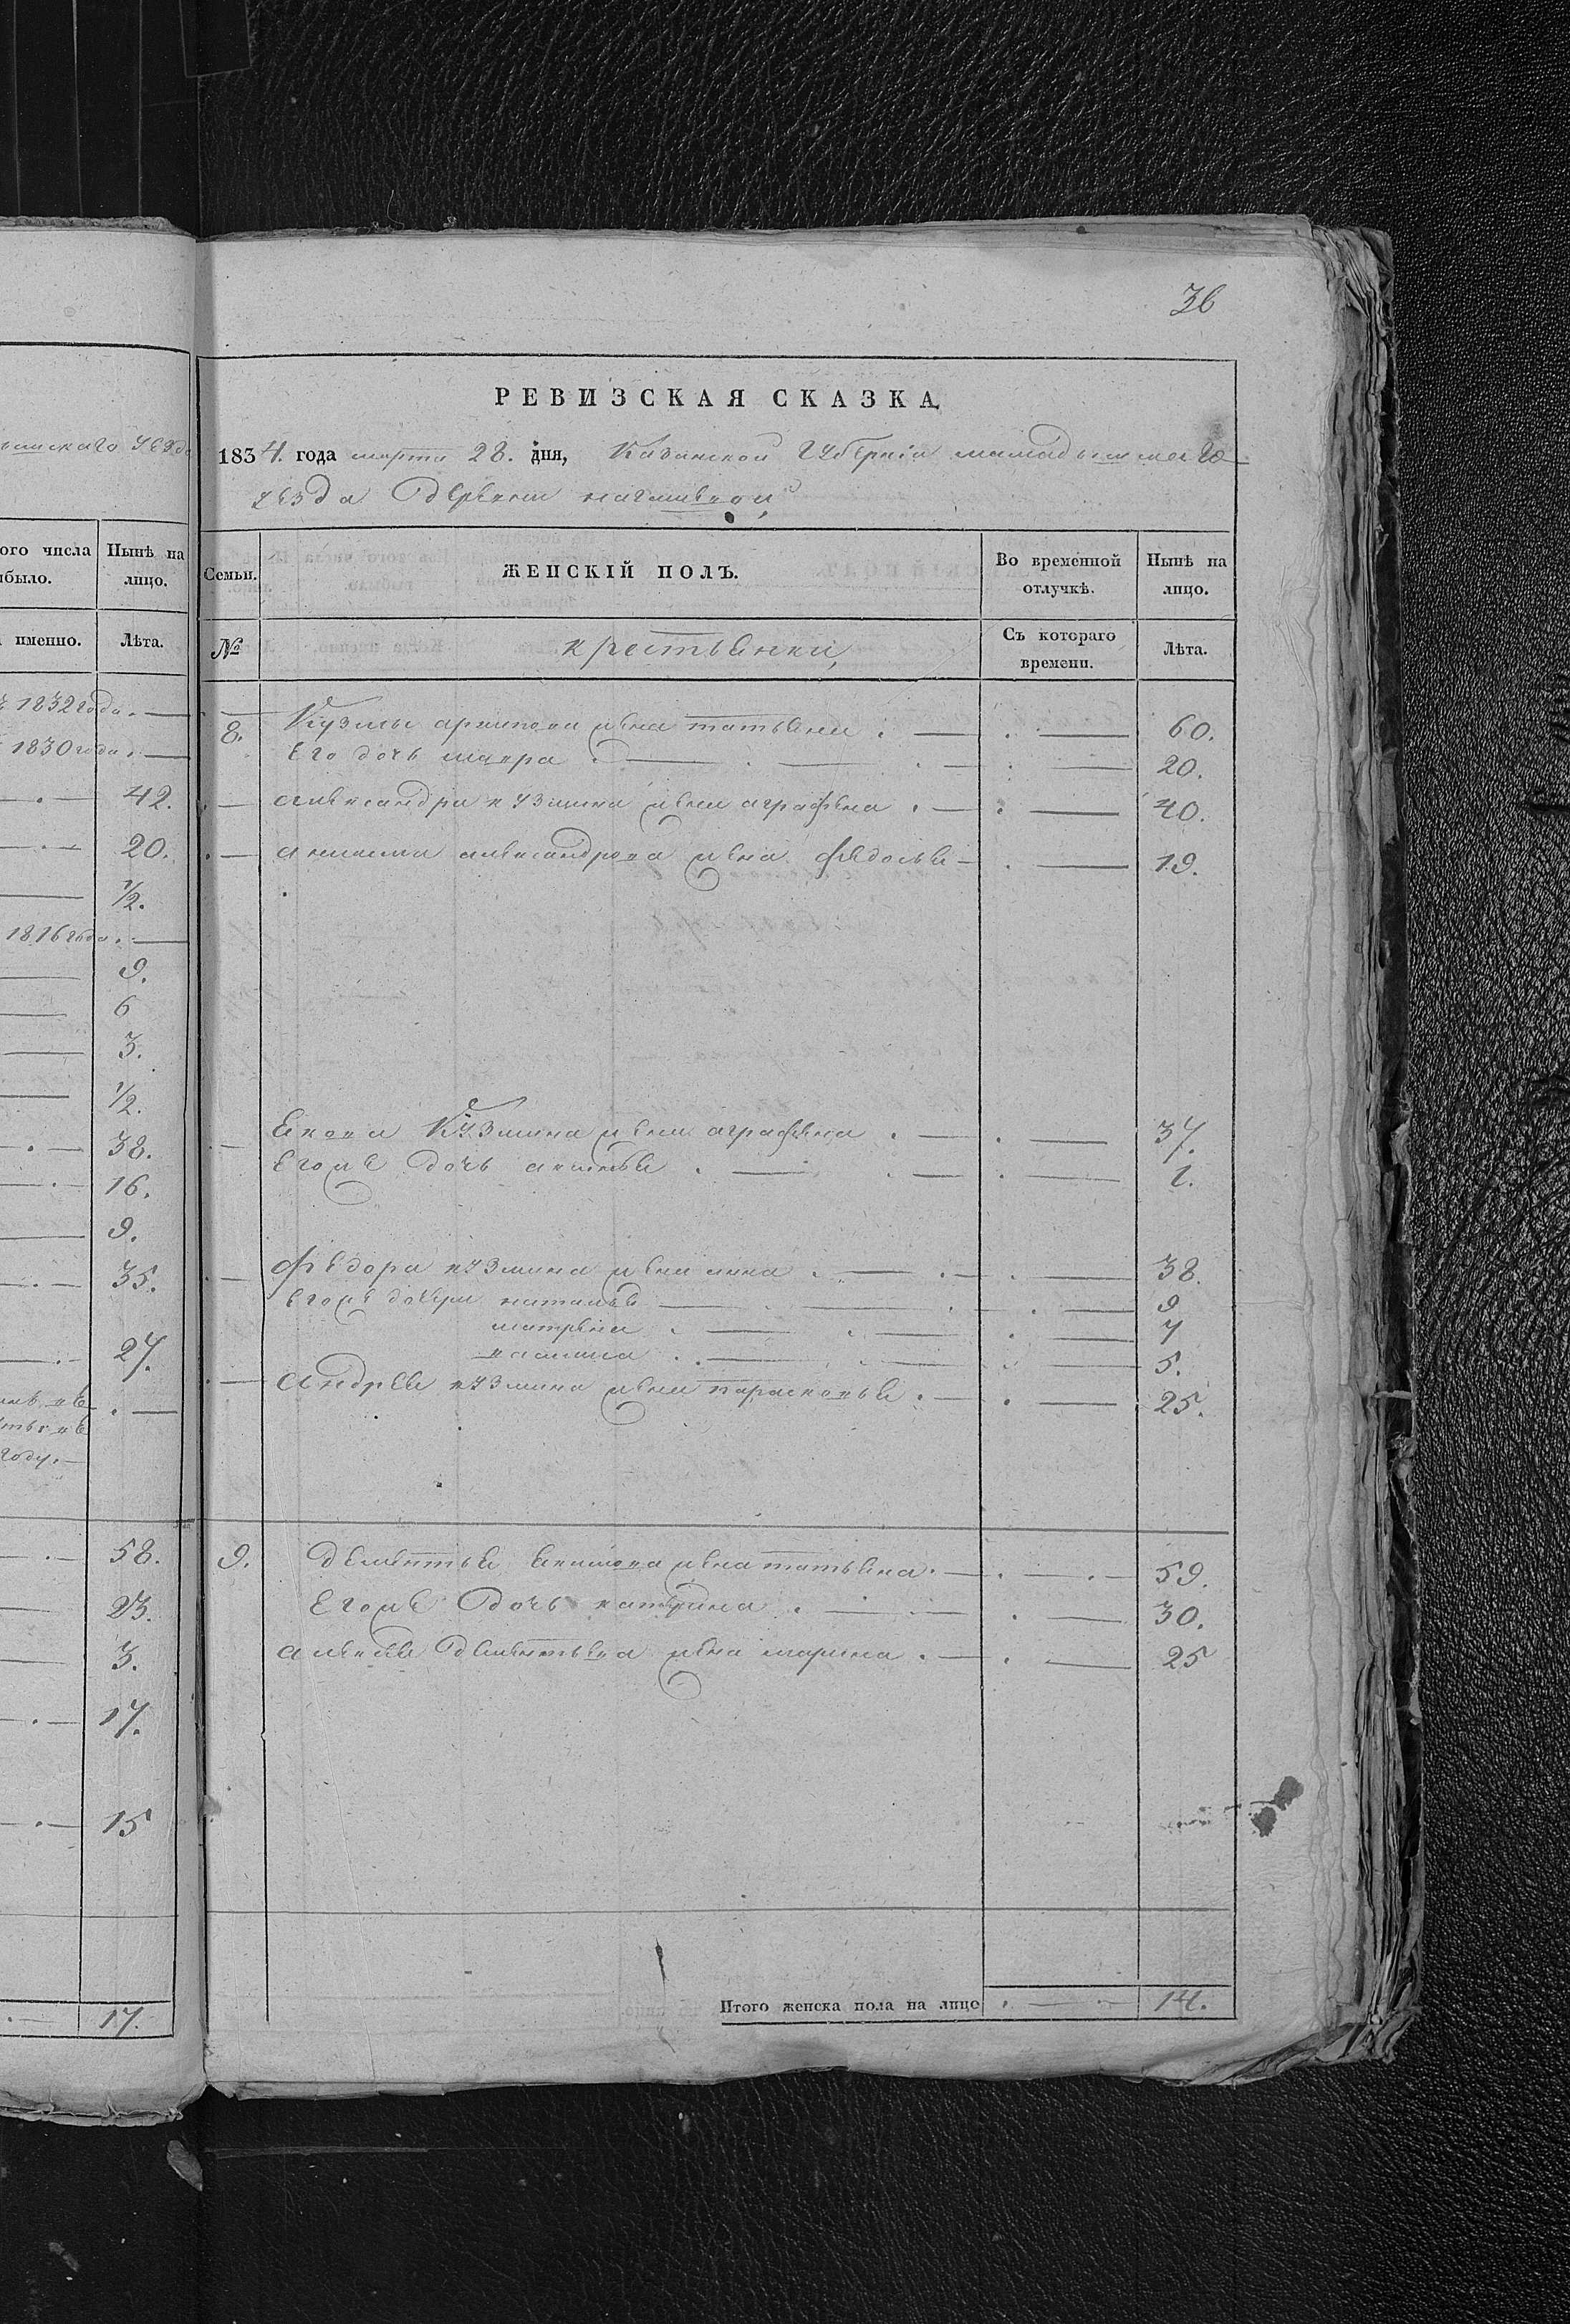 36
РЕВИЗСКАЯ СКАЗКА
1834. года марта 28. дня, Казанской Губернiи мамадышскаго
уезда деревни
ого числа
ыбыло.
Нынѣ на
лицо.
именно.
Лѣта.
1832 года.
1830 года.
42.
20.
1/2.
1816 года.
9.
6
3.
1/2.
38.
16.
9.
35.
27.
году.
58.
23.
3.
17.
15
17.
Семьи.
ЖЕНСКІЙ ПОЛЪ.
Во временной
отлучкѣ.
Нынѣ на
лицо.
№
крестьянки
Съ котораго
времени.
Лѣта.
8. Кузмы архипова жена татьяна 60.
Его дочь мавра 20.
александра кузмина жена аграфена 40.
александрова жена федосья 19.
Якова Кузмина жена аграфена 37.
Егоже дочь 1.
Федора кузмина жена анна 38.
Егоже дочери наталья 9
матрена 7
5.
Андрея кузмина жена парасковья 25.
9. дементья екимова жена татьяна 59.
Егоже дочь катерина 30.
алексея дементьева жена марина 25
Итого женска пола на лицо 14.